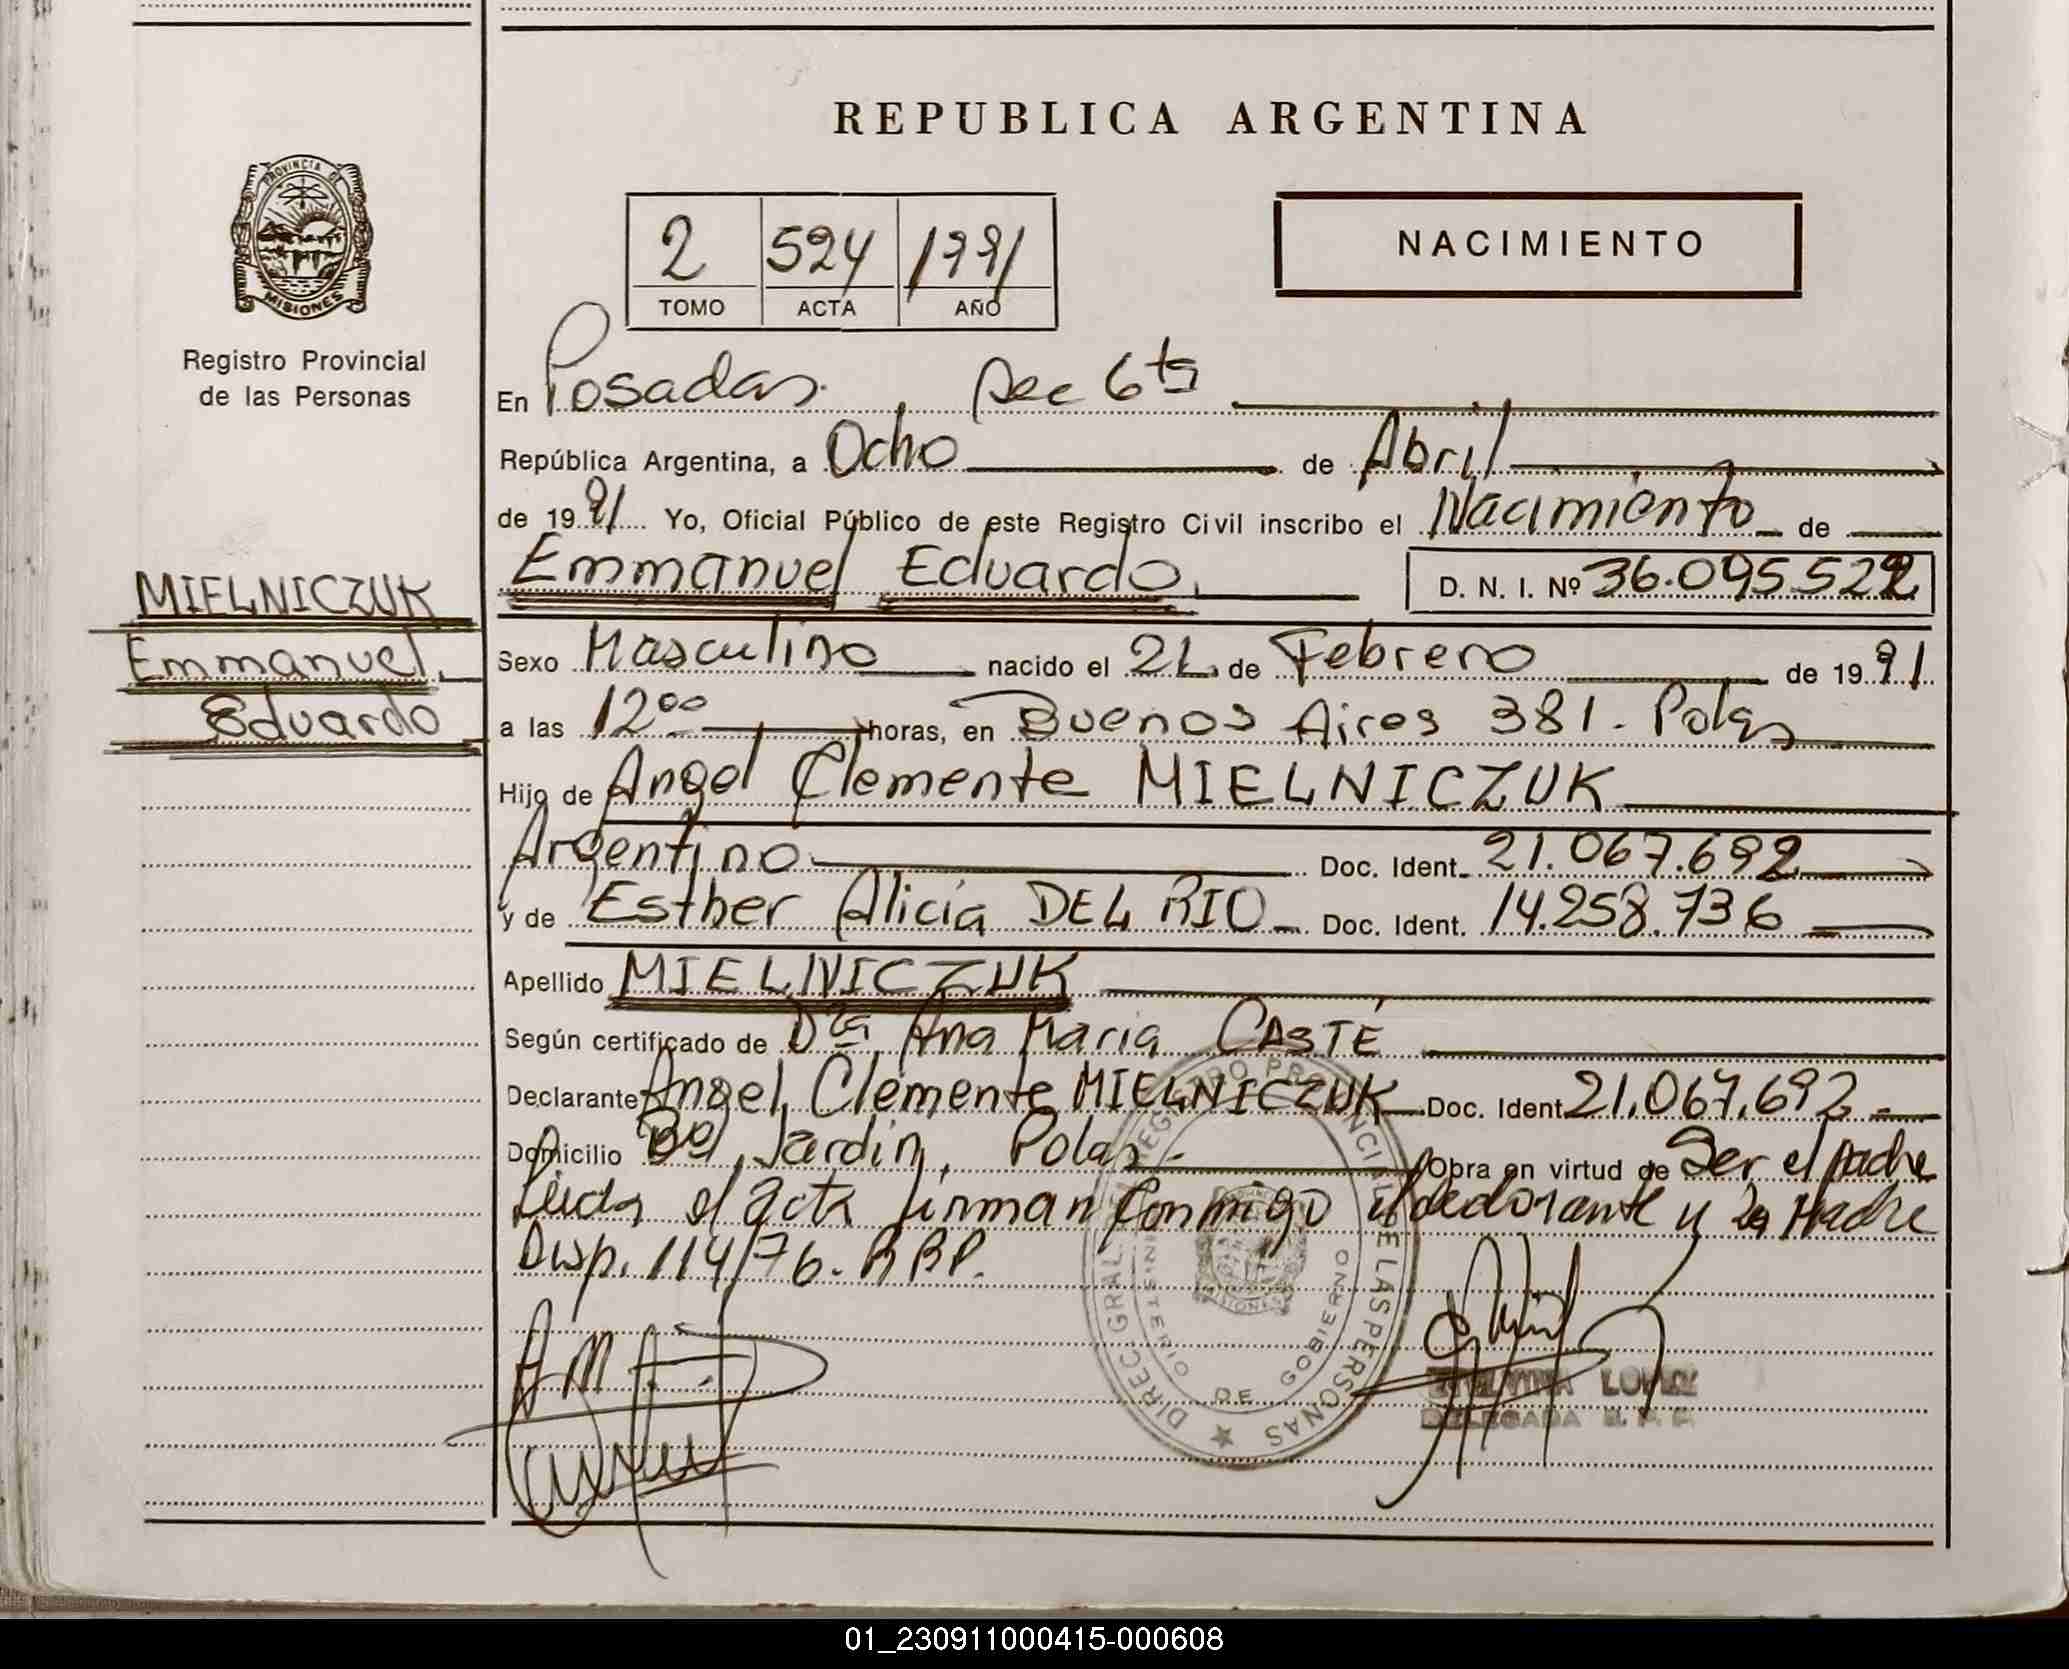 REPUBLICA ARGENTINA
PROVINCIA DE
MISIONES
Registro Provincial
de las Personas
2 524 1991
TOMO ACTA AÑO
NACIMIENTO
En Posadas, sec 6ta
República Argentina, a Ocho de Abril
de 1991 Yo, Oficial Público de este Registro Civil inscribo el Nacimiento de
Emmanuel Eduardo D. N. I. Nº 36.095.522
MIELNICZUK
Emmanuel
Eduardo
Sexo Masculino nacido el 21 de Febrero de 1991
a las 12 00 horas, en Buenos Aires 381. Pdas
Hijo de Angel Clemente MIELNICZUK
Argentino Doc. Ident. 21.067.692
y de Esther Alicia DEL RIO Doc. Ident. 14.258.736
Apellido MIELNICZUK
Según certificado de Dra Ana Maria CASTÉ
Declarante Angel Clemente MIELNICZUK Doc. Ident 21.067.692
Domicilio Bº Jardin, Pdas Obra en virtud de Ser el padre
Leida el acta firman conmigo el declarante y la Madre
Disp. 114/76. RPP.
DIREC. GRAL. DEL REGISTRO PROVINCIAL DE LAS PERSONAS
MINISTERIO DE GOBIERNO
MISIONES
LOPEZ
DELEGADA R. P. P.
01_230911000415-000608